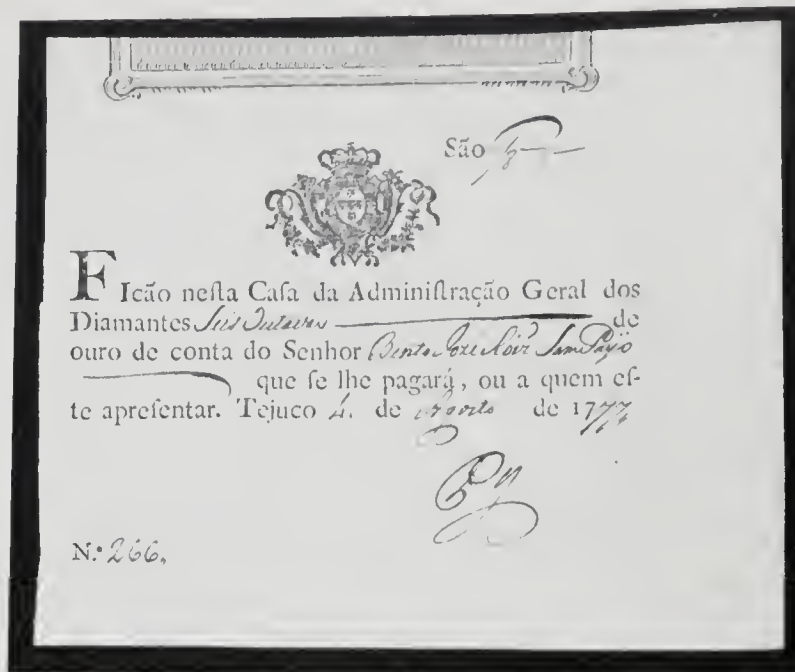 São
FIcão neſta Caſa da Adminiſtração Geral dos
Diamantes Seis Outavas de
ouro de conta do Senhor Bento Joze Roiz̃ Sam Payo
que ſe lhe pagará, ou a quem eſ-
te apreſentar. Tejuco 4. de Agosto de 1777
N.º 266.